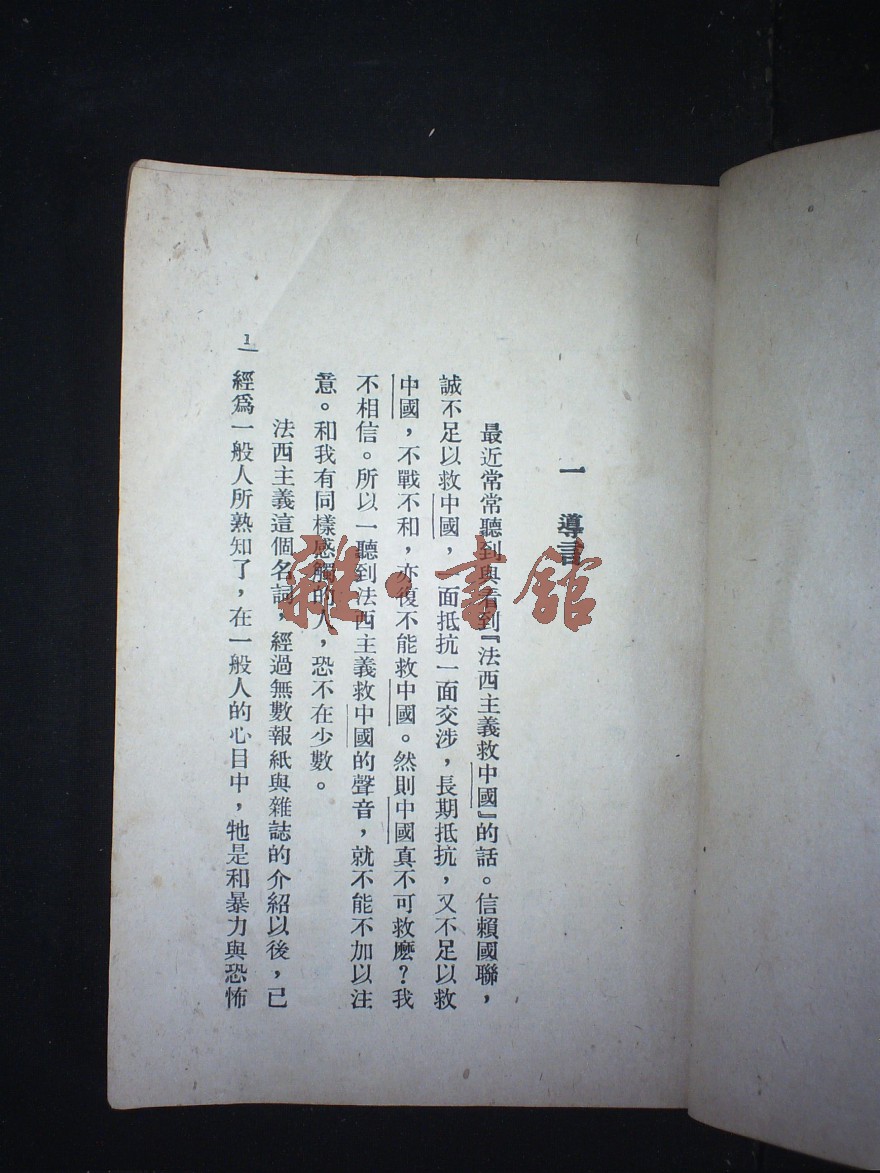 一 導言
最近常常聽到與看到『法西主義救中國』的話。信賴國聯，
誠不足以救中國，一面抵抗一面交涉，長期抵抗，又不足以救
中國，不戰不和，亦復不能救中國。然則中國真不可救麽？我
不相信。所以一聽到法西主義救中國的聲音，就不能不加以注
意。和我有同樣感觸的人，恐不在少數。
法西主義這個名詞，經過無數報紙與雜誌的介紹以後，已
經爲一般人所熟知了，在一般人的心目中，牠是和暴力與恐怖
1
雜·書館